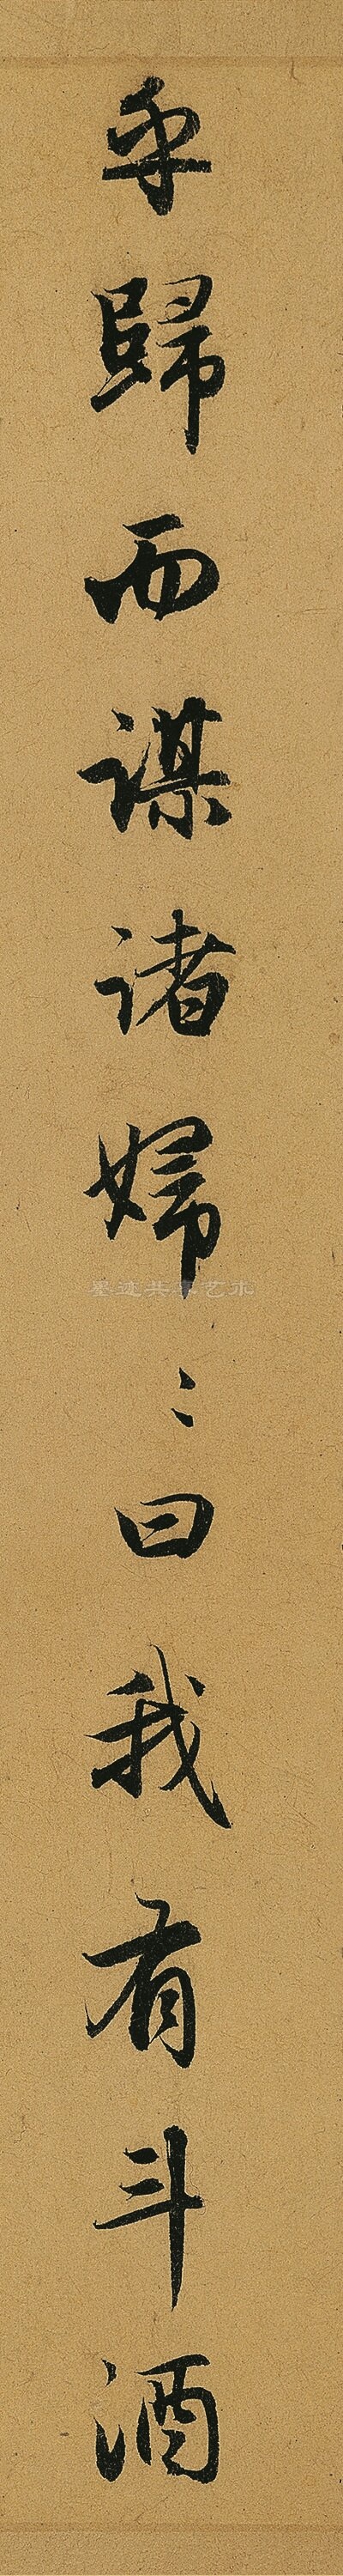 乎歸而謀諸婦〻曰我有斗酒
墨迹共享艺术